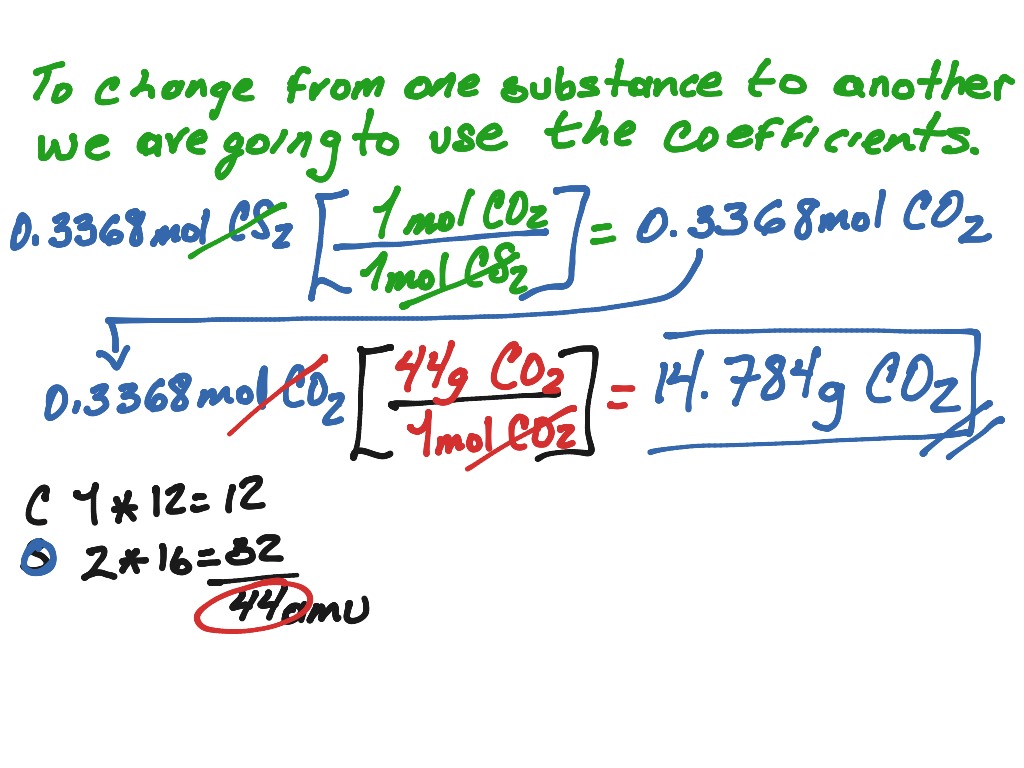 To change from one substance to another
we are going to use the coefficients.
0.3368 mol CS₂ [1 mol CO₂ / 1 mol CS₂] = 0.3368 mol CO₂
0.3368 mol CO₂ [44g CO₂ / 1 mol CO₂] = 14.784g CO₂
C 1 * 12 = 12
O 2 * 16 = 32
44 amu